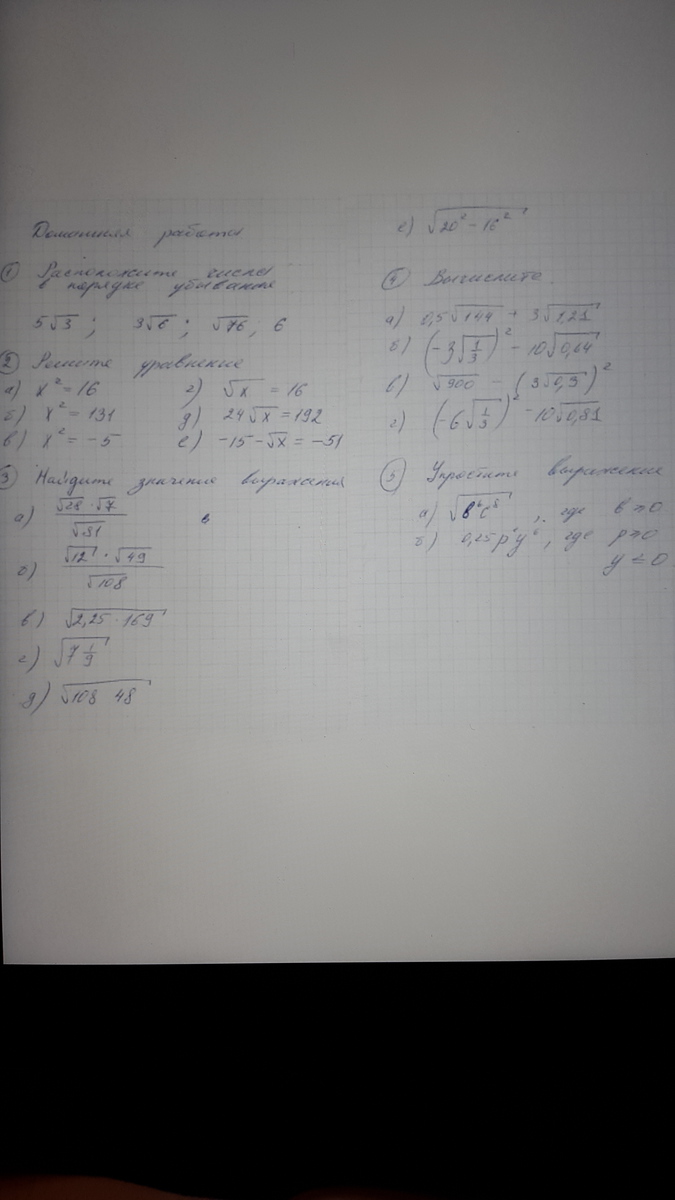 Домашняя работа
① Расположите числа
в порядке убывания
5√3 ; 3√6 ; √76 ; 6
② Решите уравнение
а) x² = 16 г) √x = 16
б) x² = 131 д) 24√x = 192
в) x² = -5 е) -15-√x = -51
③ Найдите значение выражения
а) √28 · √7 / √81
б) √12 · √49 / √108
в) √2,25 · 169
г) √7 1/9
д) √108 48
е) √20² - 16²
④ Вычислите.
а) 0,5√144 + 3√1,21
б) (-3√1/3)² - 10√0,64
в) √900 - (3√0,9)²
г) (-6√1/3)² - 10√0,81
⑤ Упростите выражение
а) √в⁶с⁸ , где в ≥ 0
б) 0,25p y⁶ , где p ≥ 0
y ≤ 0